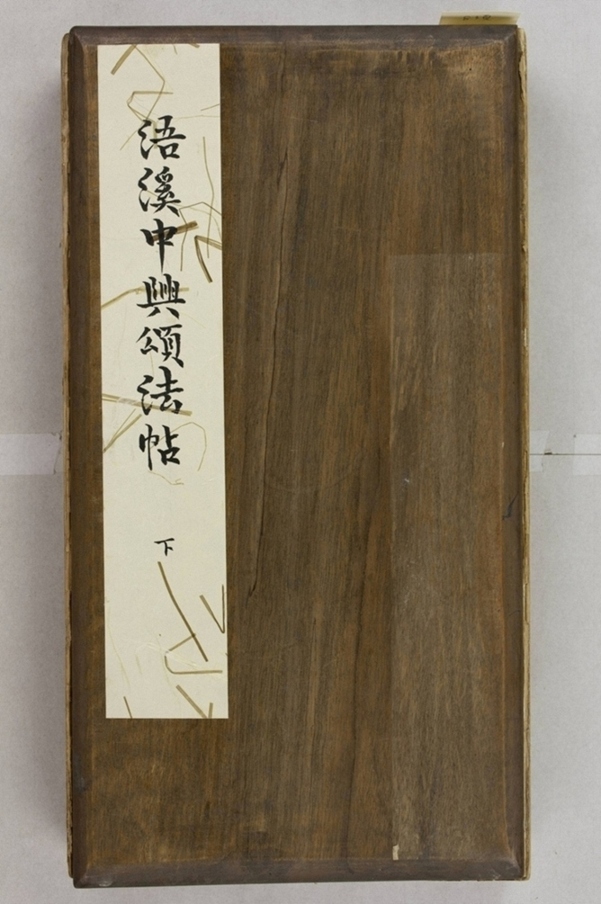 浯溪中興頌法帖 下